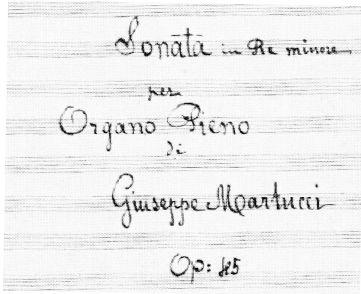 Sonata in Re minore
per
Organo Pieno
di
Giuseppe Martucci
Op: 45